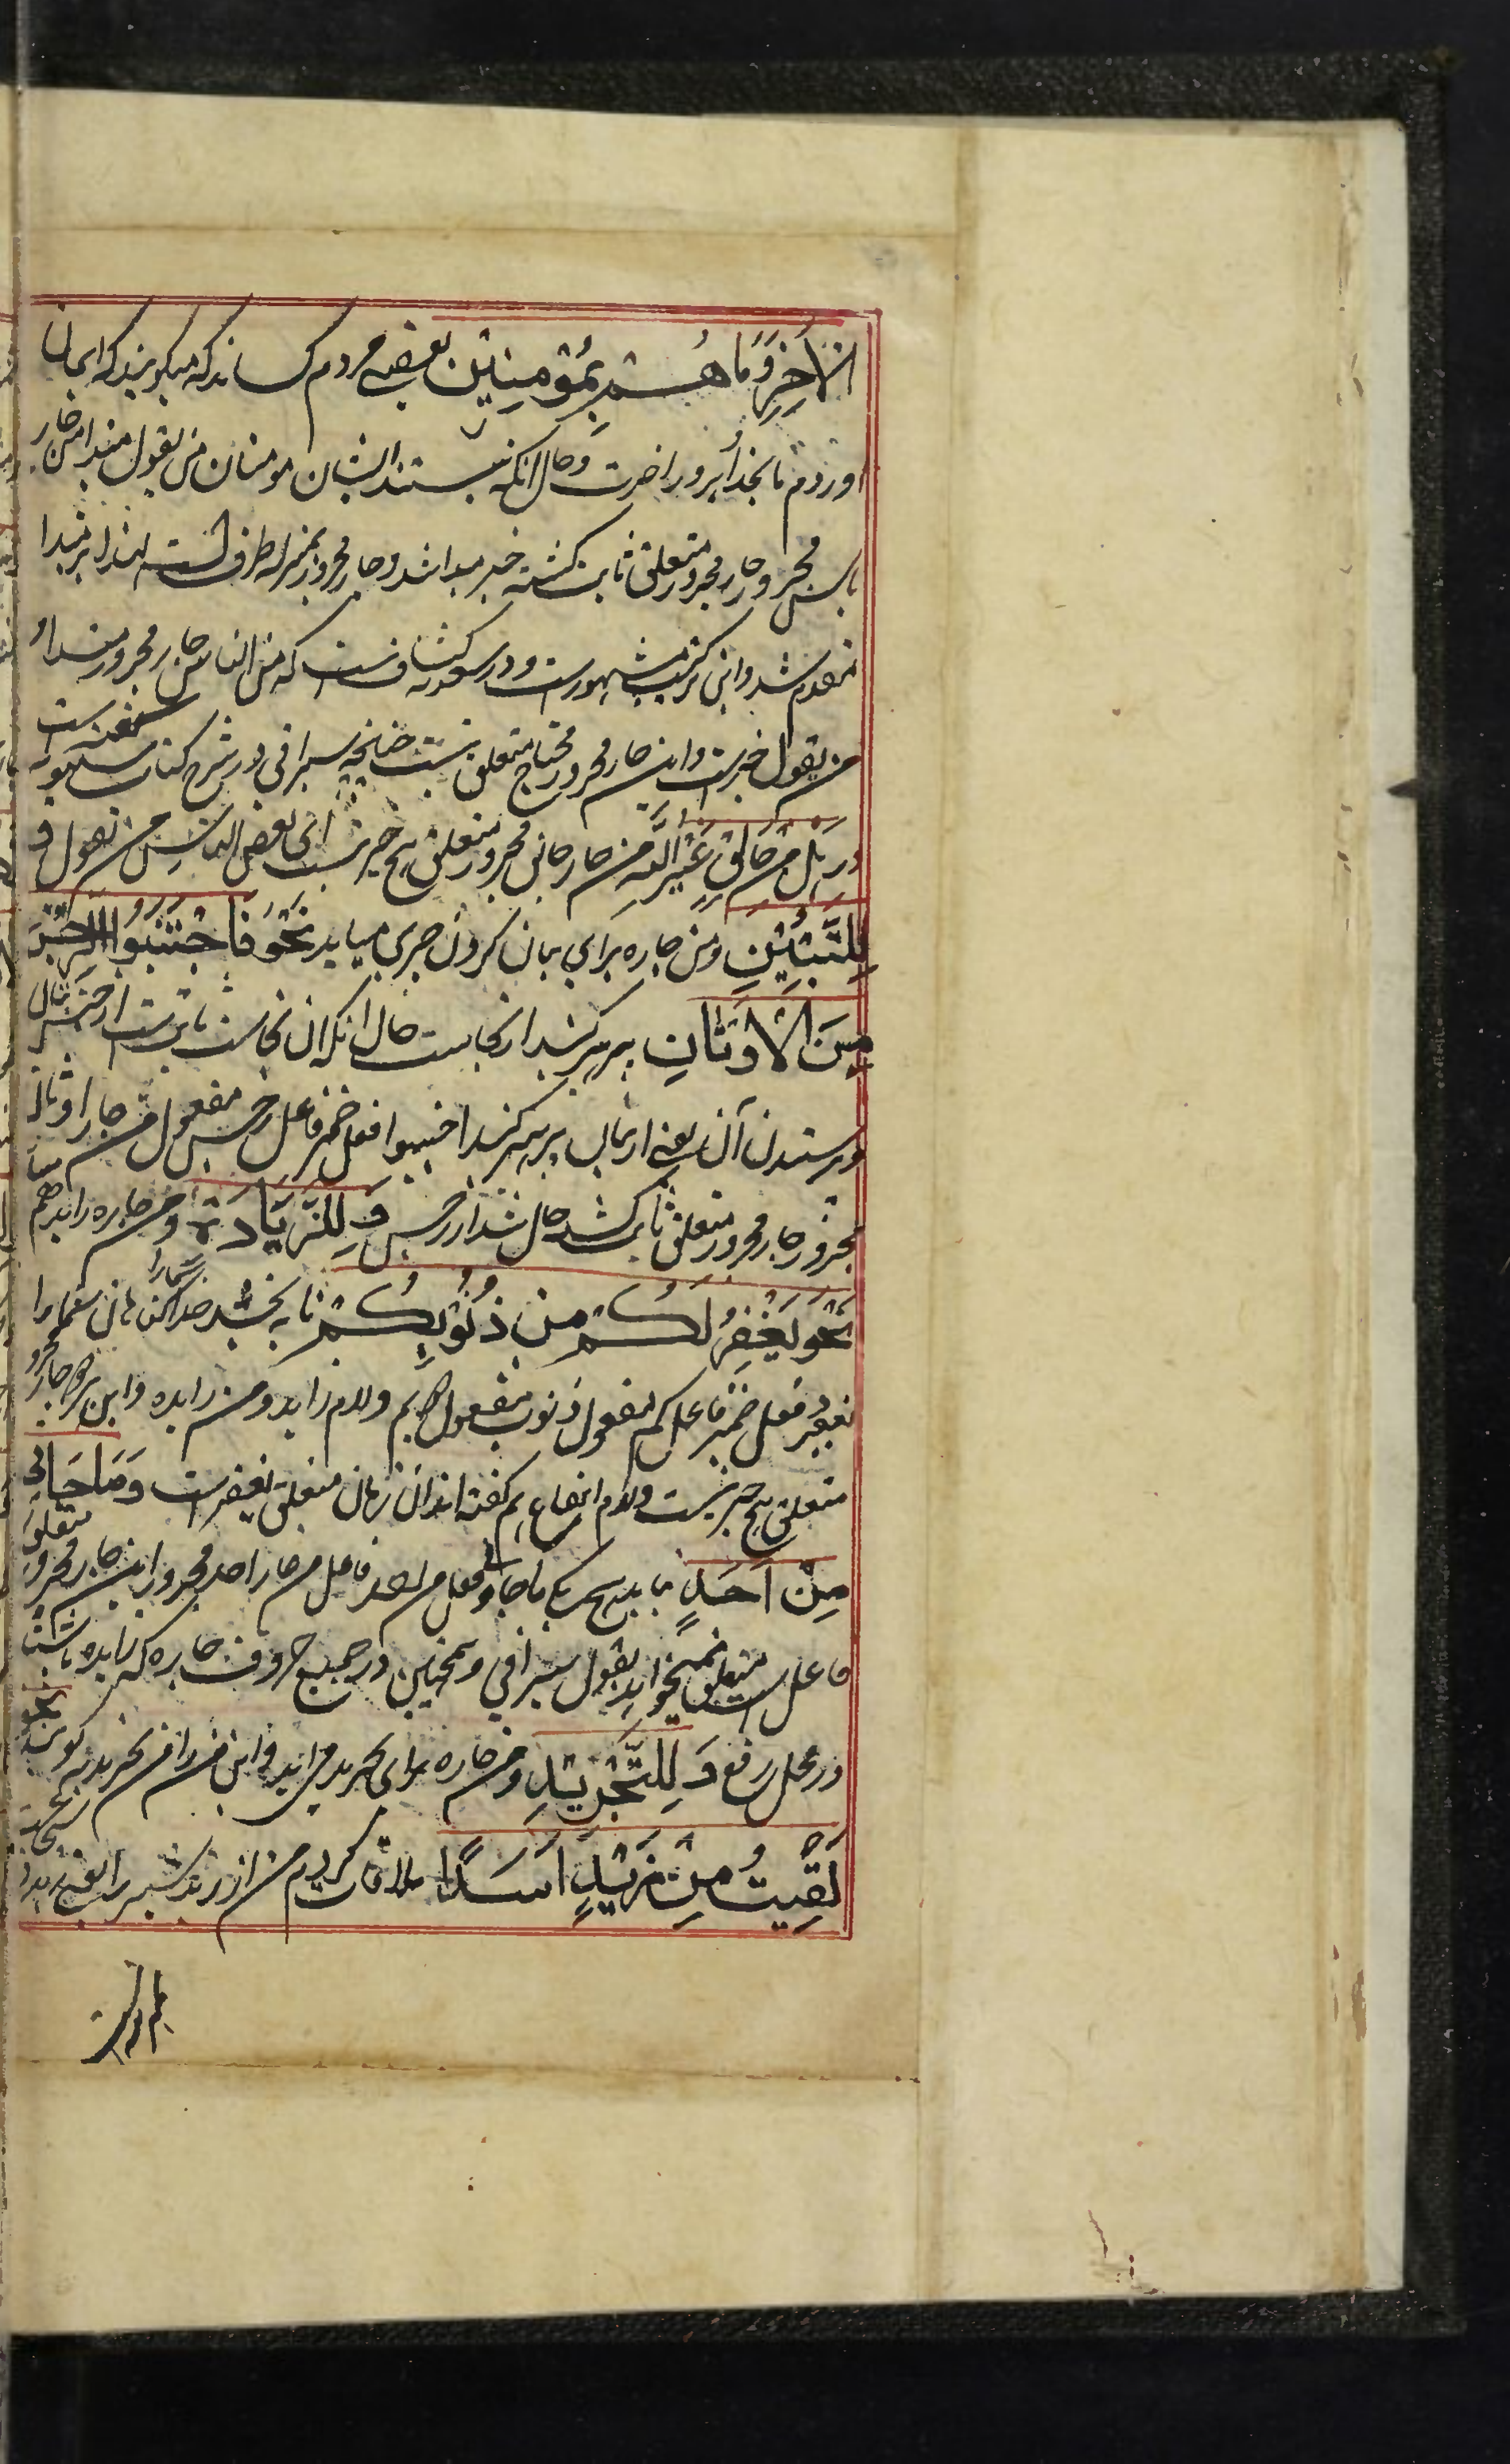 الاٰخِرِ وَمَا هُمْ بِمُؤْمِنِیْنَ بعضی مردم کسانند که میگویند که ایمان
اوردم ما بخدا و بروز اخرت و حال انکه نیستند ایشان مومنان من یقول مبتدا من جار
ناس مجرور جار مجرور متعلق ثابت گشته خبر مبتدا شد و جار مجرور بمنزله ظرف است لهذا بر مبتدا
مقدم شد و این ترکیب مشهورست و در کشاف است که من الناس جار مجرور مبتدا و
من یقول خبرست و این جار مجرور محتاج متعلق نیست چنانچه سیرافی در شرح کتاب سیبویه گفته است
در هَلْ مِنْ خَالِقٍ غَیْرُ اللّٰهِ من جار خالق مجرور متعلق هیچ چیز نیست ای بعض الناس من یقول و
لِلتَّبْیِیْنِ و من جاره برای بیان کردن چیزی میاید نَحْوُ فَاجْتَنِبُوا الرِّجْسَ
مِنَ الْاَوْثَانِ پرهیز کنید از نجاست حال انکه ان نجاست ثابت است از جنس بتان
و پرستدن آن یعنی از بتان پرهیز کنید اجتنبوا فعل ضمیر فاعل رجس مفعول من جار اوثان
مجرور جار مجرور متعلق ثابت گشته حال شد از رجس وَ لِلزِّیَادَةِ و من جاره زاید هم میاید
نَحْوُ یَغْفِرُ لَکُمْ مِنْ ذُنُوْبِکُمْ تا به بخشد خدا گناهان شمارا
یغفر فعل ضمیر فاعل کم مفعول ذنوب مفعول هم و لام زاید و من زایده و این هر دو جار مجرور
متعلق هیچ چیز نیست و لام انتفاع هم گفته اند ان زمان متعلق یغفرست وَ مَا جَاءَنِیْ
مِنْ اَحَدٍ نیامد هیچ یکی ما جاء فعل من احد فاعل من جار احد مجرور این جار مجرور
فاعل است متعلق نمیخواهد بقول سیرافی و همچنین در جمیع حروف جاره که زایده باشند
در محل رفع وَ لِلتَّجْرِیْدِ و من جاره برای تجرید می اید و این من را من تجریدیه گویند نحو
لَقِیْتُ مِنْ زَیْدٍ اَسَدًا ملاقات کردم من از زید شیر را یعنی